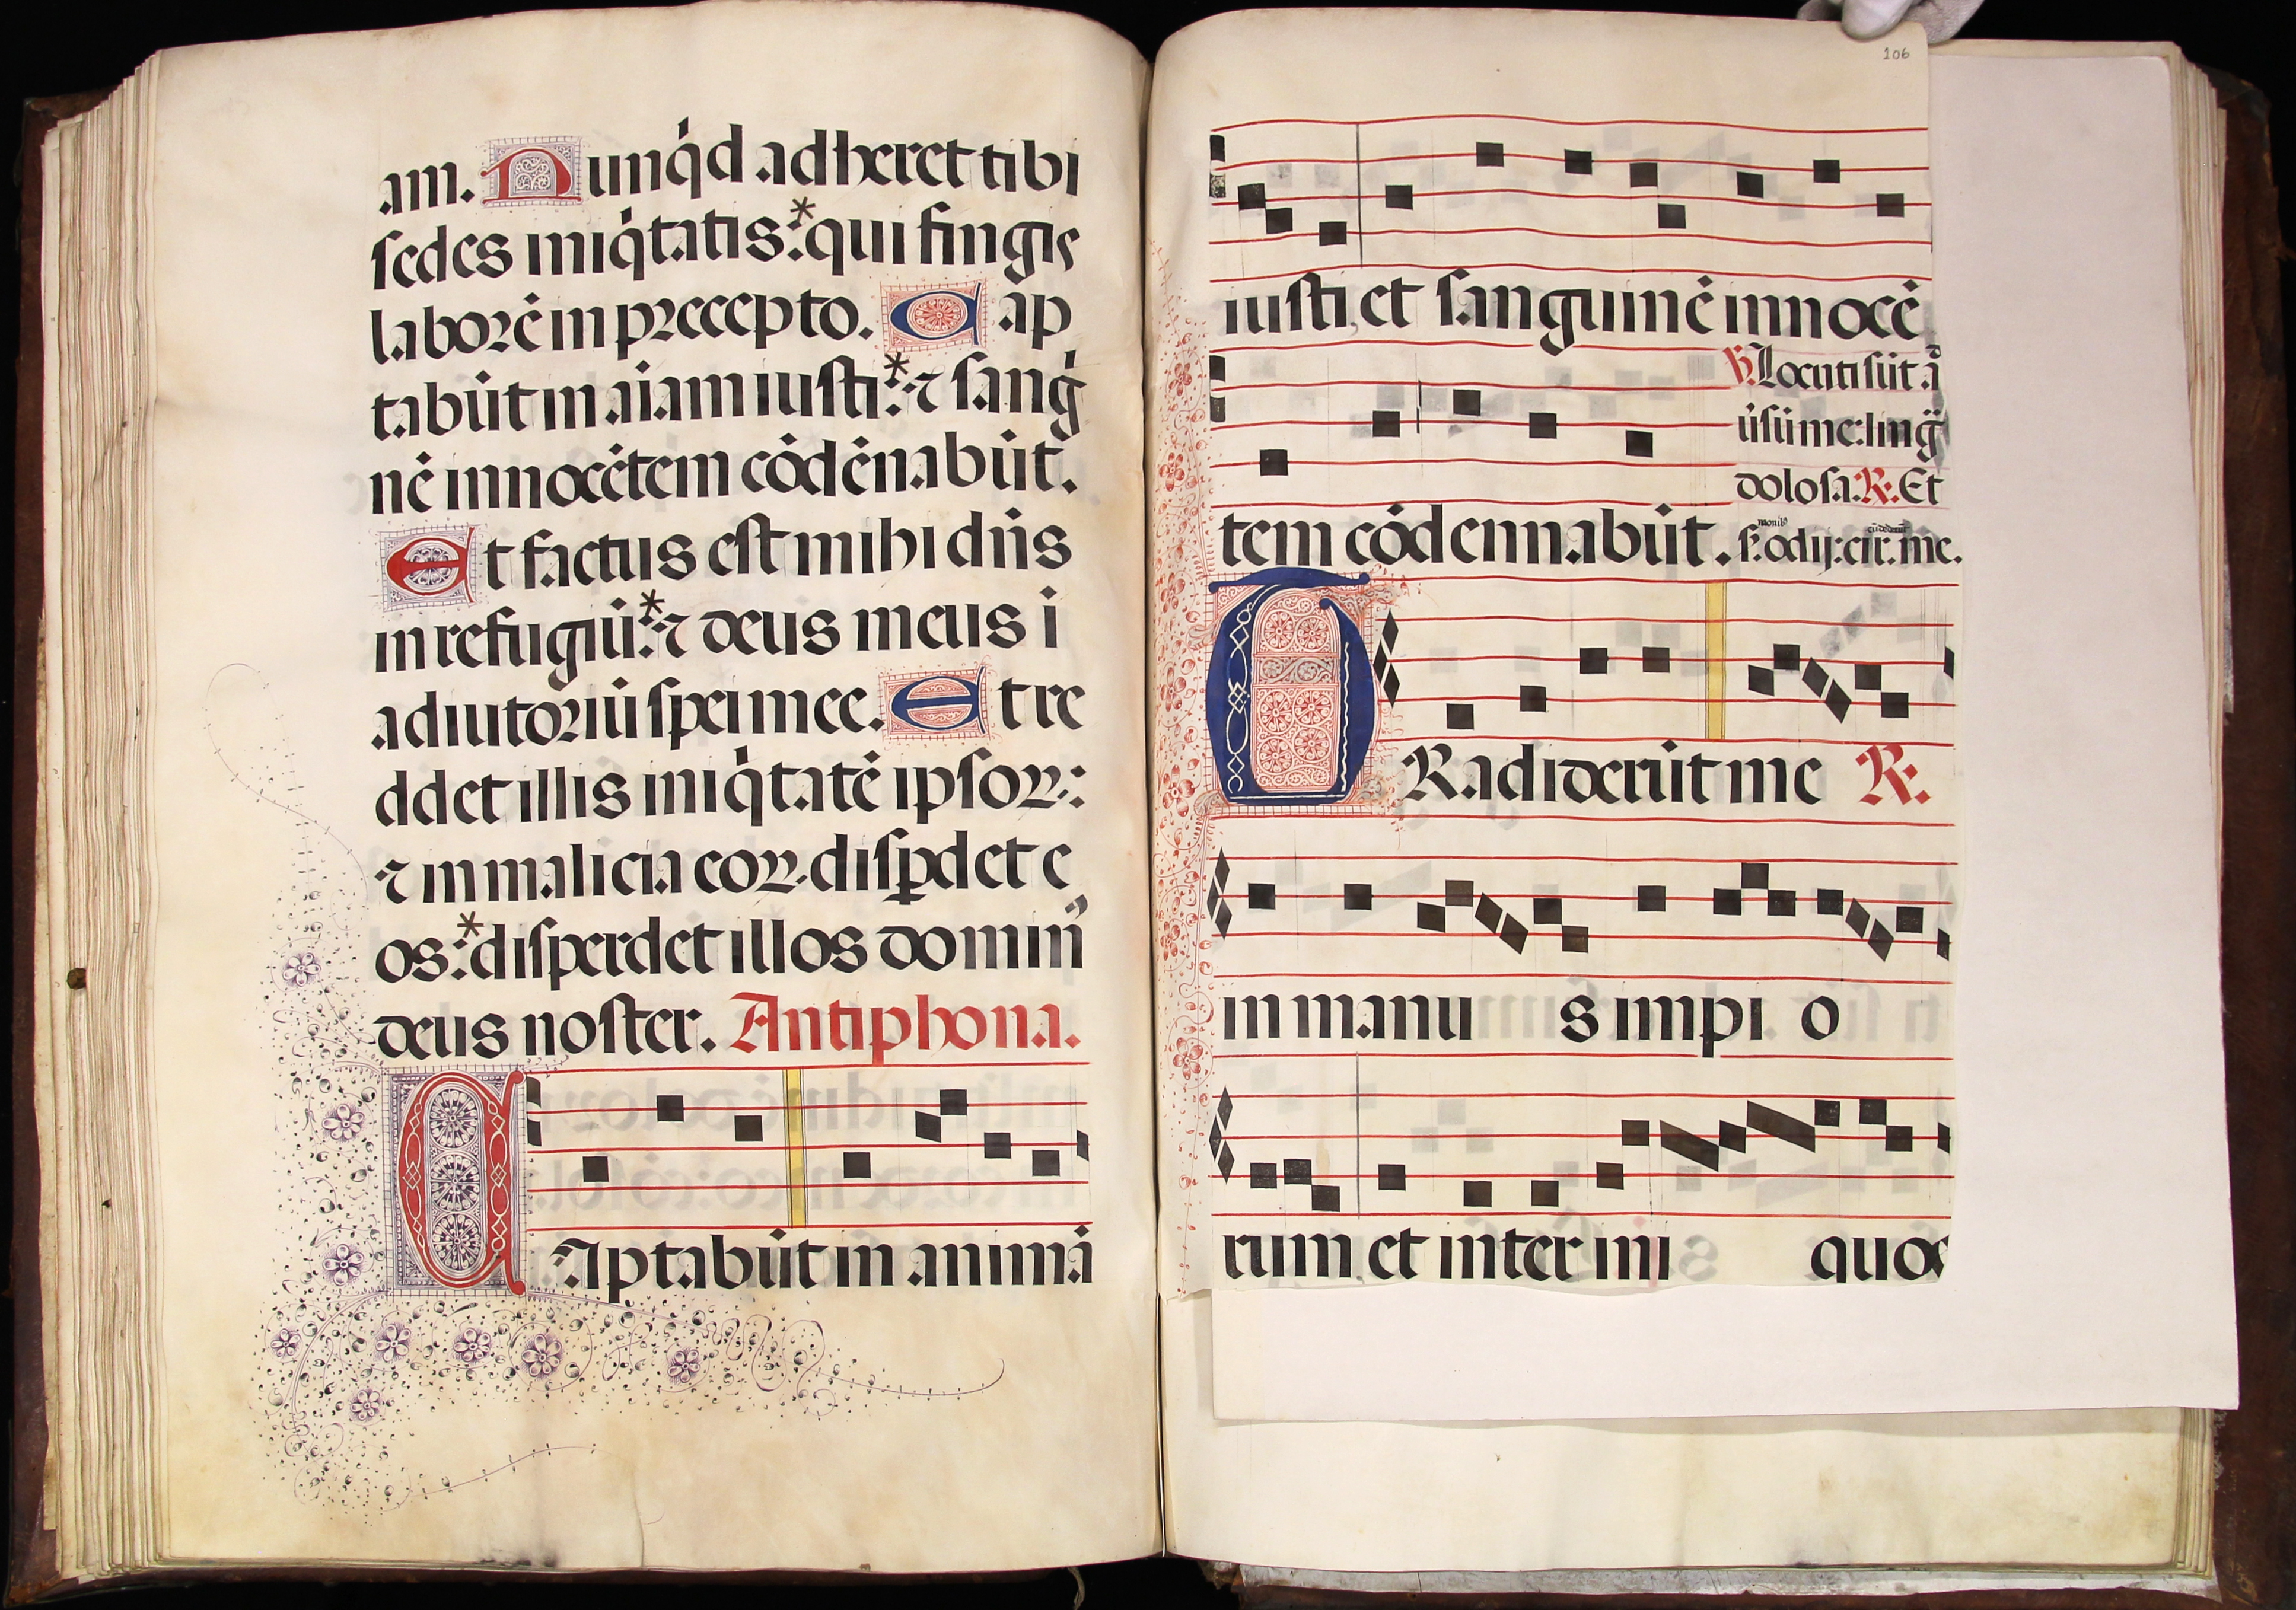 am. Nunq̇d adheret tibi
sedes iniq̇tatis:* qui fingis
laborē in precepto. Cap
tabūt in aīam iusti:* ⁊ sanġ
nē innocētem cōdēnabūt.
Et factus est mihi dn̄s
in refugiū:* ⁊ deus meus i
adiutoriū spei mee. Et re
ddet illis iniq̇tatē ipsoꝝ:
⁊ in malicia eoꝝ disꝑdet e
os:* disperdet illos domin⁹
deus noster. Antiphona.
CAptabūt in animā
106
iusti, et sanguinē innocē
tem cōdennabūt.
℣. Locuti sūt ad
ūsū me: ling̈
dolosa. R. Et
s. odij: cir. me.
monib⁹ cūdederūt
TRadiderūt me R.
in manus impio
rum, et inter iniquos